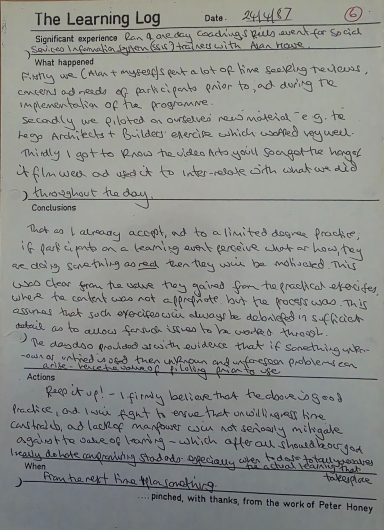 The Learning Log Date. 24/4/87 6
Significant experience Ran a one day Coaching Skills event for Social
Services Information System (SSIS) trainers with Alan Howe.
What happened
Firstly we (Alan + myself) spent a lot of time seeking the views,
concerns and needs of participants prior to, and during the
implementation of the programme.
Secondly we piloted on ourselves new material e.g. the
Lego Architects + Builders exercise which worked very well.
Thirdly I got to know the video Arts you'll soon get the hang of
it film well and used it to inter-relate with what we did
throughout the day.
Conclusions
That as I already accept, and to a limited degree practice,
if participants on a learning event perceive what or how, they
are doing something as real then they will be motivated. This
was clear from the value they gained from the practical exercises,
where the content was not appropriate but the process was. This
assumes that such exercises will always be debriefed in sufficient
detail as to allow for such issues to be worked through.
The day also provided us with evidence that if something unkn-
own or untried is used then unknown and unforeseen problems can
arise - hence the value of piloting prior to use
Actions
Keep it up! - I firmly believe that the above is good
practice, and I will fight to ensure that unwillingness time
constraints, and lack of manpower will not seriously mitigate
against the value of learning - which after all should be our goal
I really do hate compromising standards especially when to do so totally
the actual learning that
takes place
When
From the next time I plan something.
....pinched, with thanks, from the work of Peter Honey